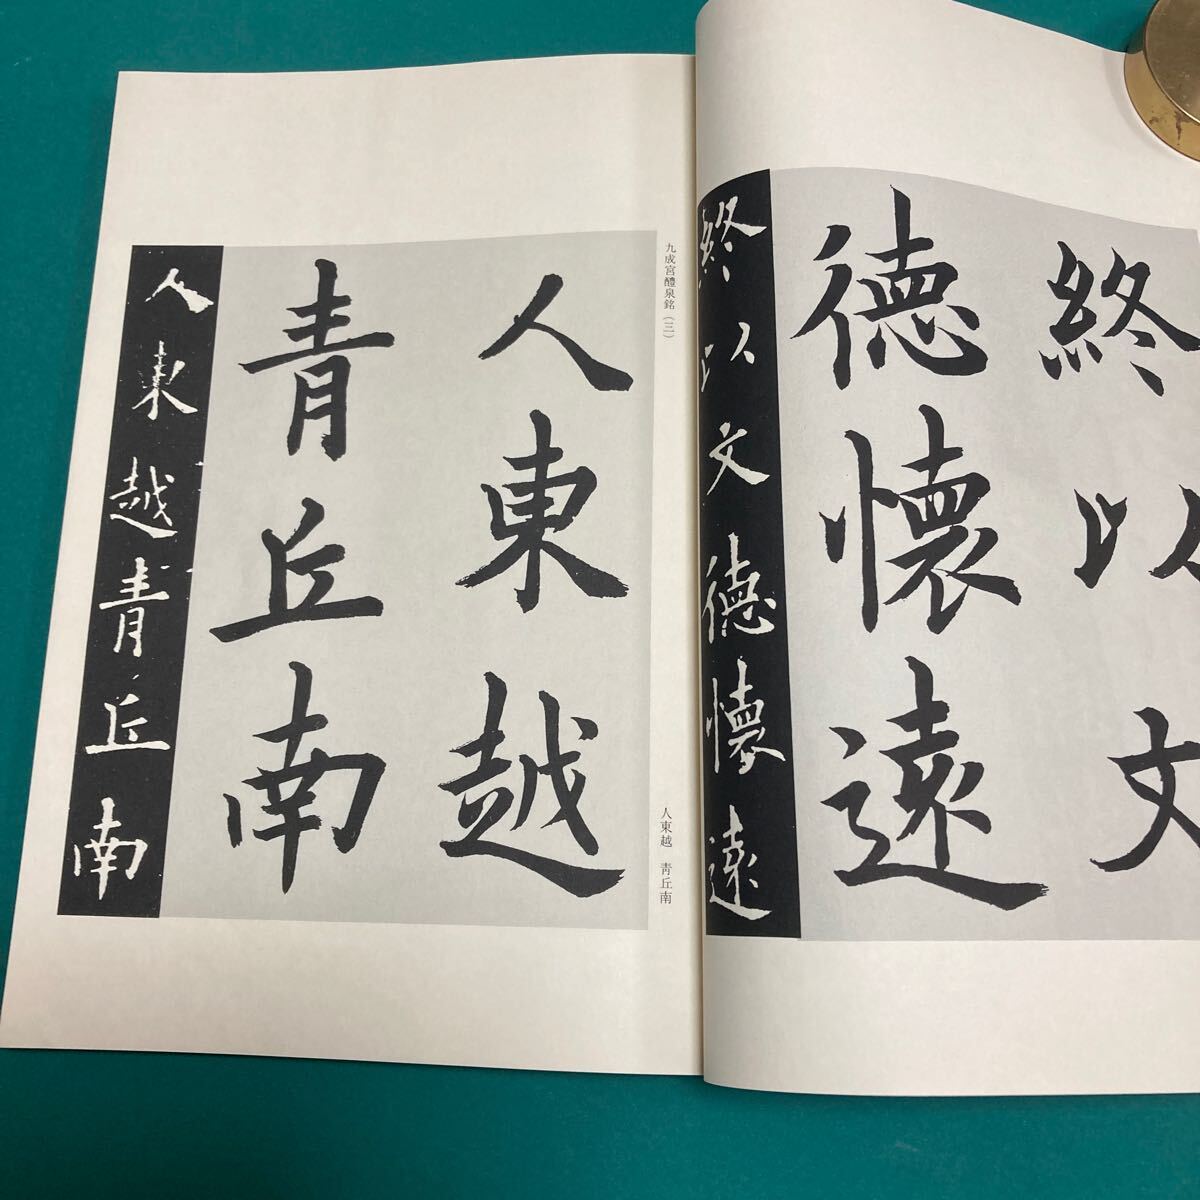 終以文
德懷遠
終以文德懷遠
九成宮醴泉銘(三)
人東越 靑丘南
人東越
青丘南
人東越青丘南